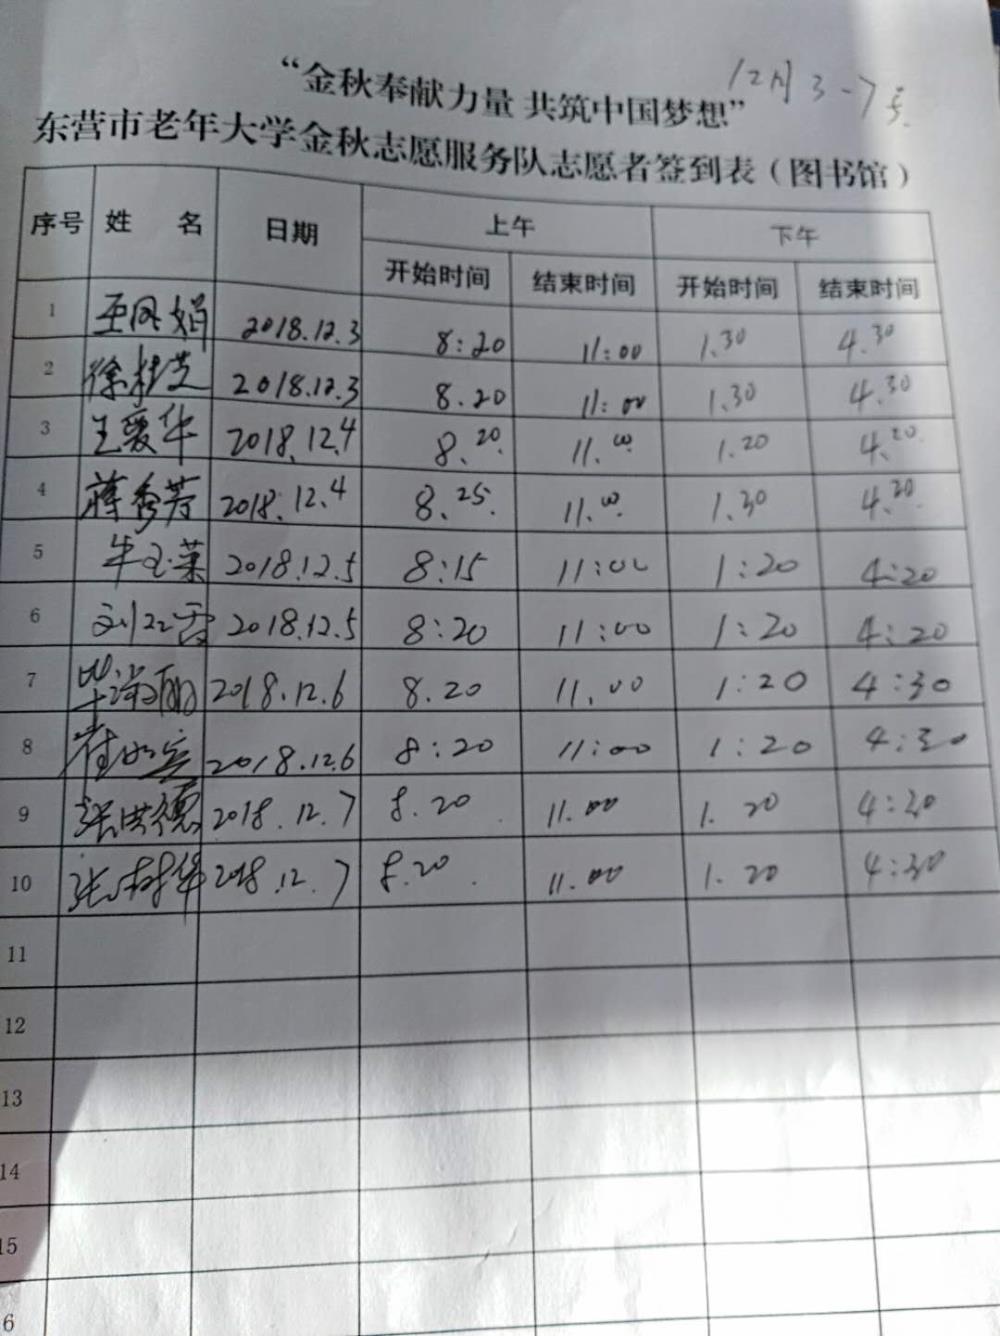 “金秋奉献力量 共筑中国梦想” 12月3-7号
东营市老年大学金秋志愿服务队志愿者签到表（图书馆）
序号 姓 名 日期 上午 下午
开始时间 结束时间 开始时间 结束时间
1 王凤娟 2018.12.3 8:20 11:00 1.30 4.30
2 徐桂芝 2018.12.3 8.20 11:00 1.30 4.30
3 王爱华 2018.12.4 8.20 11.00 1.20 4.20
4 蒋秀芳 2018.12.4 8.25 11.00 1.30 4.30
5 牛玉莱 2018.12.5 8:15 11:00 1:20 4:20
6 刘红霞 2018.12.5 8:20 11:00 1:20 4:20
7 毕淑丽 2018.12.6 8.20 11.00 1:20 4:30
8 崔 2018.12.6 8:20 11:00 1:20 4:30
9 张洪德 2018.12.7 8.20 11.00 1.20 4:30
10 张树华 2018.12.7 8.20 11.00 1.20 4:30
11
12
13
14
15
6